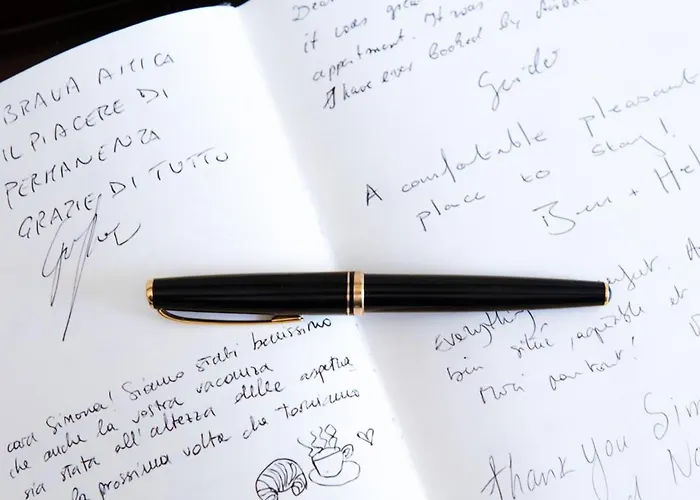 BRAVA AMICA
IL PIACERE DI
PERMANENZA
GRAZIE DI TUTTO
cara Simona! Siamo stati benissimo
che anche la vostra vacanza
sia stata all'altezza delle aspetta
la prossima volta che torniamo
Dear
it was grea
appartment. It was
I have ever booked by
Guido
A comfortable pleasant
place to stay!
Ben + Hel
Everything
bien situé, agréable et
Merci
Thank you Sim